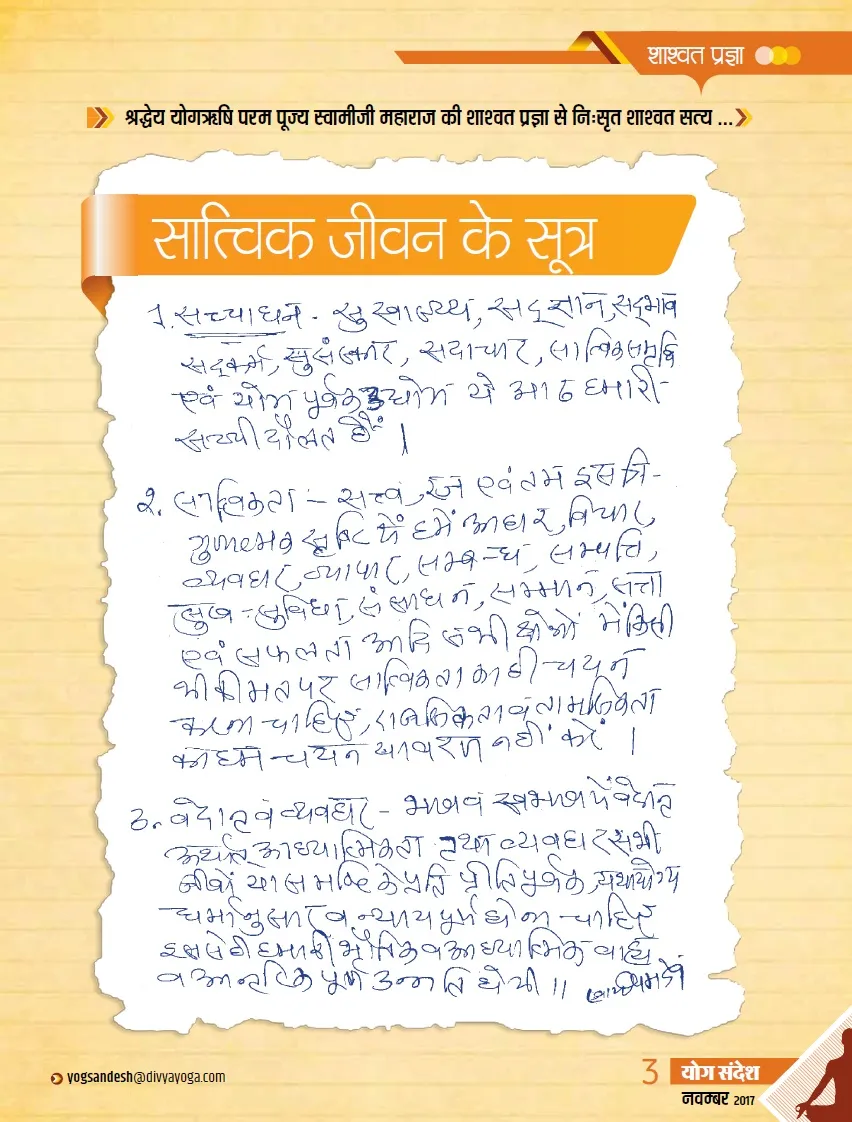 शाश्वत प्रज्ञा
श्रद्धेय योगऋषि परम पूज्य स्वामीजी महाराज की शाश्वत प्रज्ञा से निःसृत शाश्वत सत्य ...
सात्विक जीवन के सूत्र
1. सच्चा धन - सुस्वास्थ्य, सद्ज्ञान, सद्भाव
सद्कर्म, सुसंस्कार, सदाचार, सात्विक समृद्धि
एवं योग पूर्वक उद्योग ये आठ हमारी
सच्ची दौलत हैं।
2. सात्विकता :- सत्त्व, रज एवं तम इस त्रि-
गुणात्मक सृष्टि में हमें आहार, विचार,
व्यवहार, व्यापार, सम्बन्ध, सम्पत्ति,
सुख-सुविधा, संसाधन, सम्मान, सत्ता
एवं सफलता आदि सभी क्षेत्रों में किसी
भी कीमत पर सात्विकता का ही चयन
करना चाहिए, राजसिकता व तामसिकता
का हम चयन या वरण नहीं करें।
3. वेदान्त व व्यवहार - भाव व स्वभाव में वेदान्त
अर्थात् आध्यात्मिकता तथा व्यवहार सभी
जीवों या समष्टि के प्रति प्रीतिपूर्वक, यथायोग्य
धर्मानुसार व न्यायपूर्ण होना चाहिए
इससे ही हमारी भौतिक व आध्यात्मिक बाह्य
व आन्तरिक पूर्ण उन्नति होगी॥
yogsandesh@divyayoga.com
3 योग संदेश
नवम्बर 2017